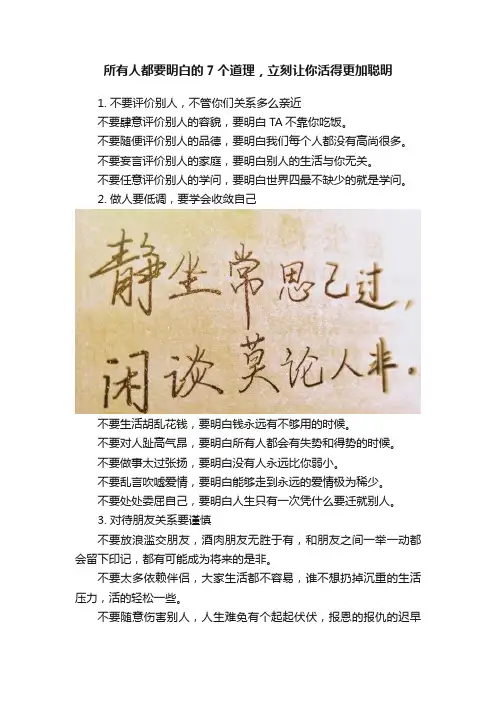 所有人都要明白的7个道理，立刻让你活得更加聪明
1. 不要评价别人，不管你们关系多么亲近
不要肆意评价别人的容貌，要明白TA不靠你吃饭。
不要随便评价别人的品德，要明白我们每个人都没有高尚很多。
不要妄言评价别人的家庭，要明白别人的生活与你无关。
不要任意评价别人的学问，要明白世界四最不缺少的就是学问。
2. 做人要低调，要学会收敛自己
静坐常思己过，
闲谈莫论人非。
不要生活胡乱花钱，要明白钱永远有不够用的时候。
不要对人趾高气昂，要明白所有人都会有失势和得势的时候。
不要做事太过张扬，要明白没有人永远比你弱小。
不要乱言吹嘘爱情，要明白能够走到永远的爱情极为稀少。
不要处处委屈自己，要明白人生只有一次凭什么要迁就别人。
3. 对待朋友关系要谨慎
不要放浪滥交朋友，酒肉朋友无胜于有，和朋友之间一举一动都
会留下印记，都有可能成为将来的是非。
不要太多依赖伴侣，大家生活都不容易，谁不想扔掉沉重的生活
压力，活的轻松一些。
不要随意伤害别人，人生难免有个起起伏伏，报恩的报仇的迟早